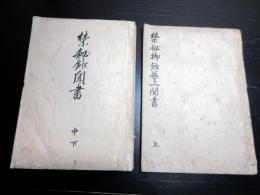 禁秘御鈔巻上聞書
上
禁秘鈔聞書
中下